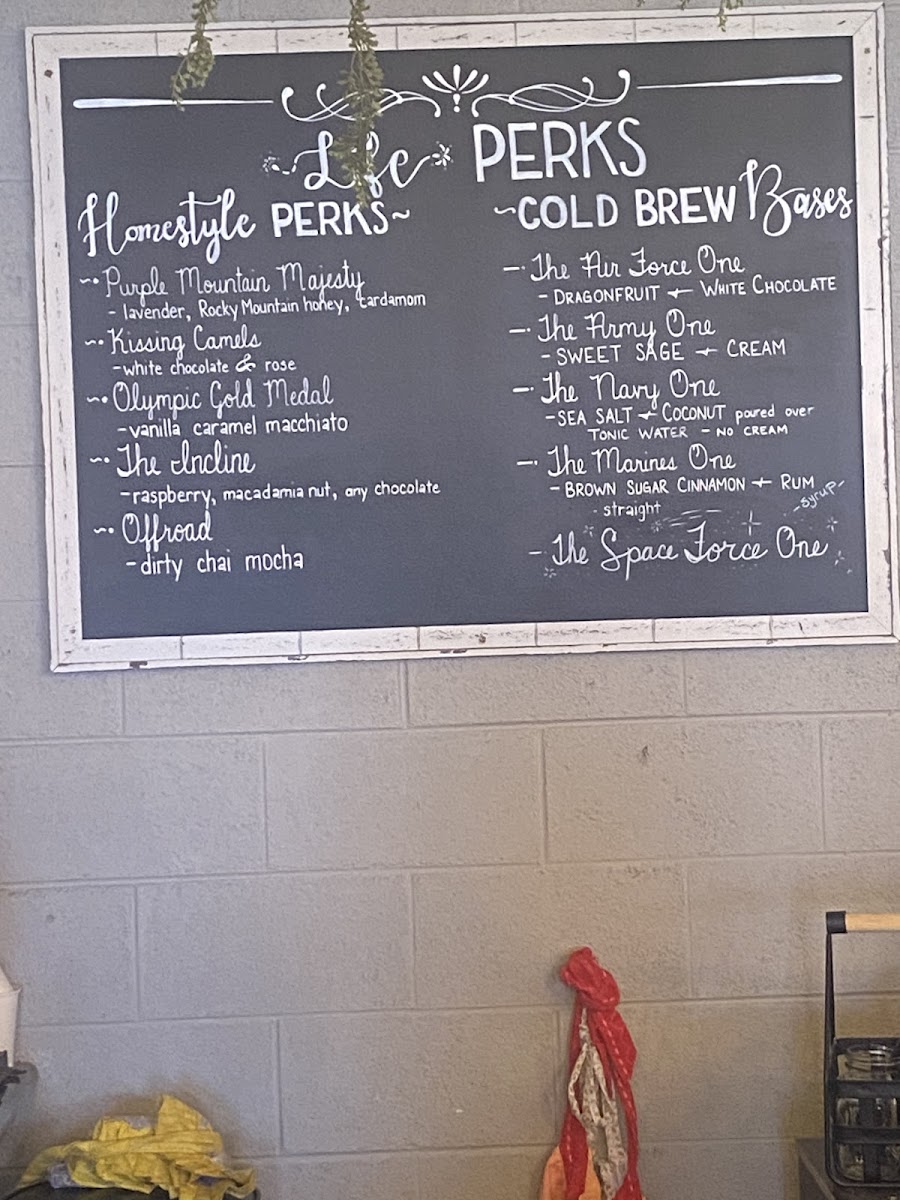 Life PERKS
Homestyle PERKS~
~· Purple Mountain Majesty
- lavender, Rocky Mountain honey, cardamom
~· Kissing Camels
-white chocolate & rose
~· Olympic Gold Medal
-vanilla caramel macchiato
~· The Incline
-raspberry, macadamia nut, any chocolate
~· Offroad
-dirty chai mocha
~COLD BREW Bases
—· The Air Force One
- DRAGONFRUIT + WHITE CHOCOLATE
—· The Army One
- SWEET SAGE + CREAM
—· The Navy One
-SEA SALT + COCONUT poured over
TONIC WATER - NO CREAM
—· The Marines One
- BROWN SUGAR CINNAMON + RUM
-syrup-
- straight
- The Space Force One